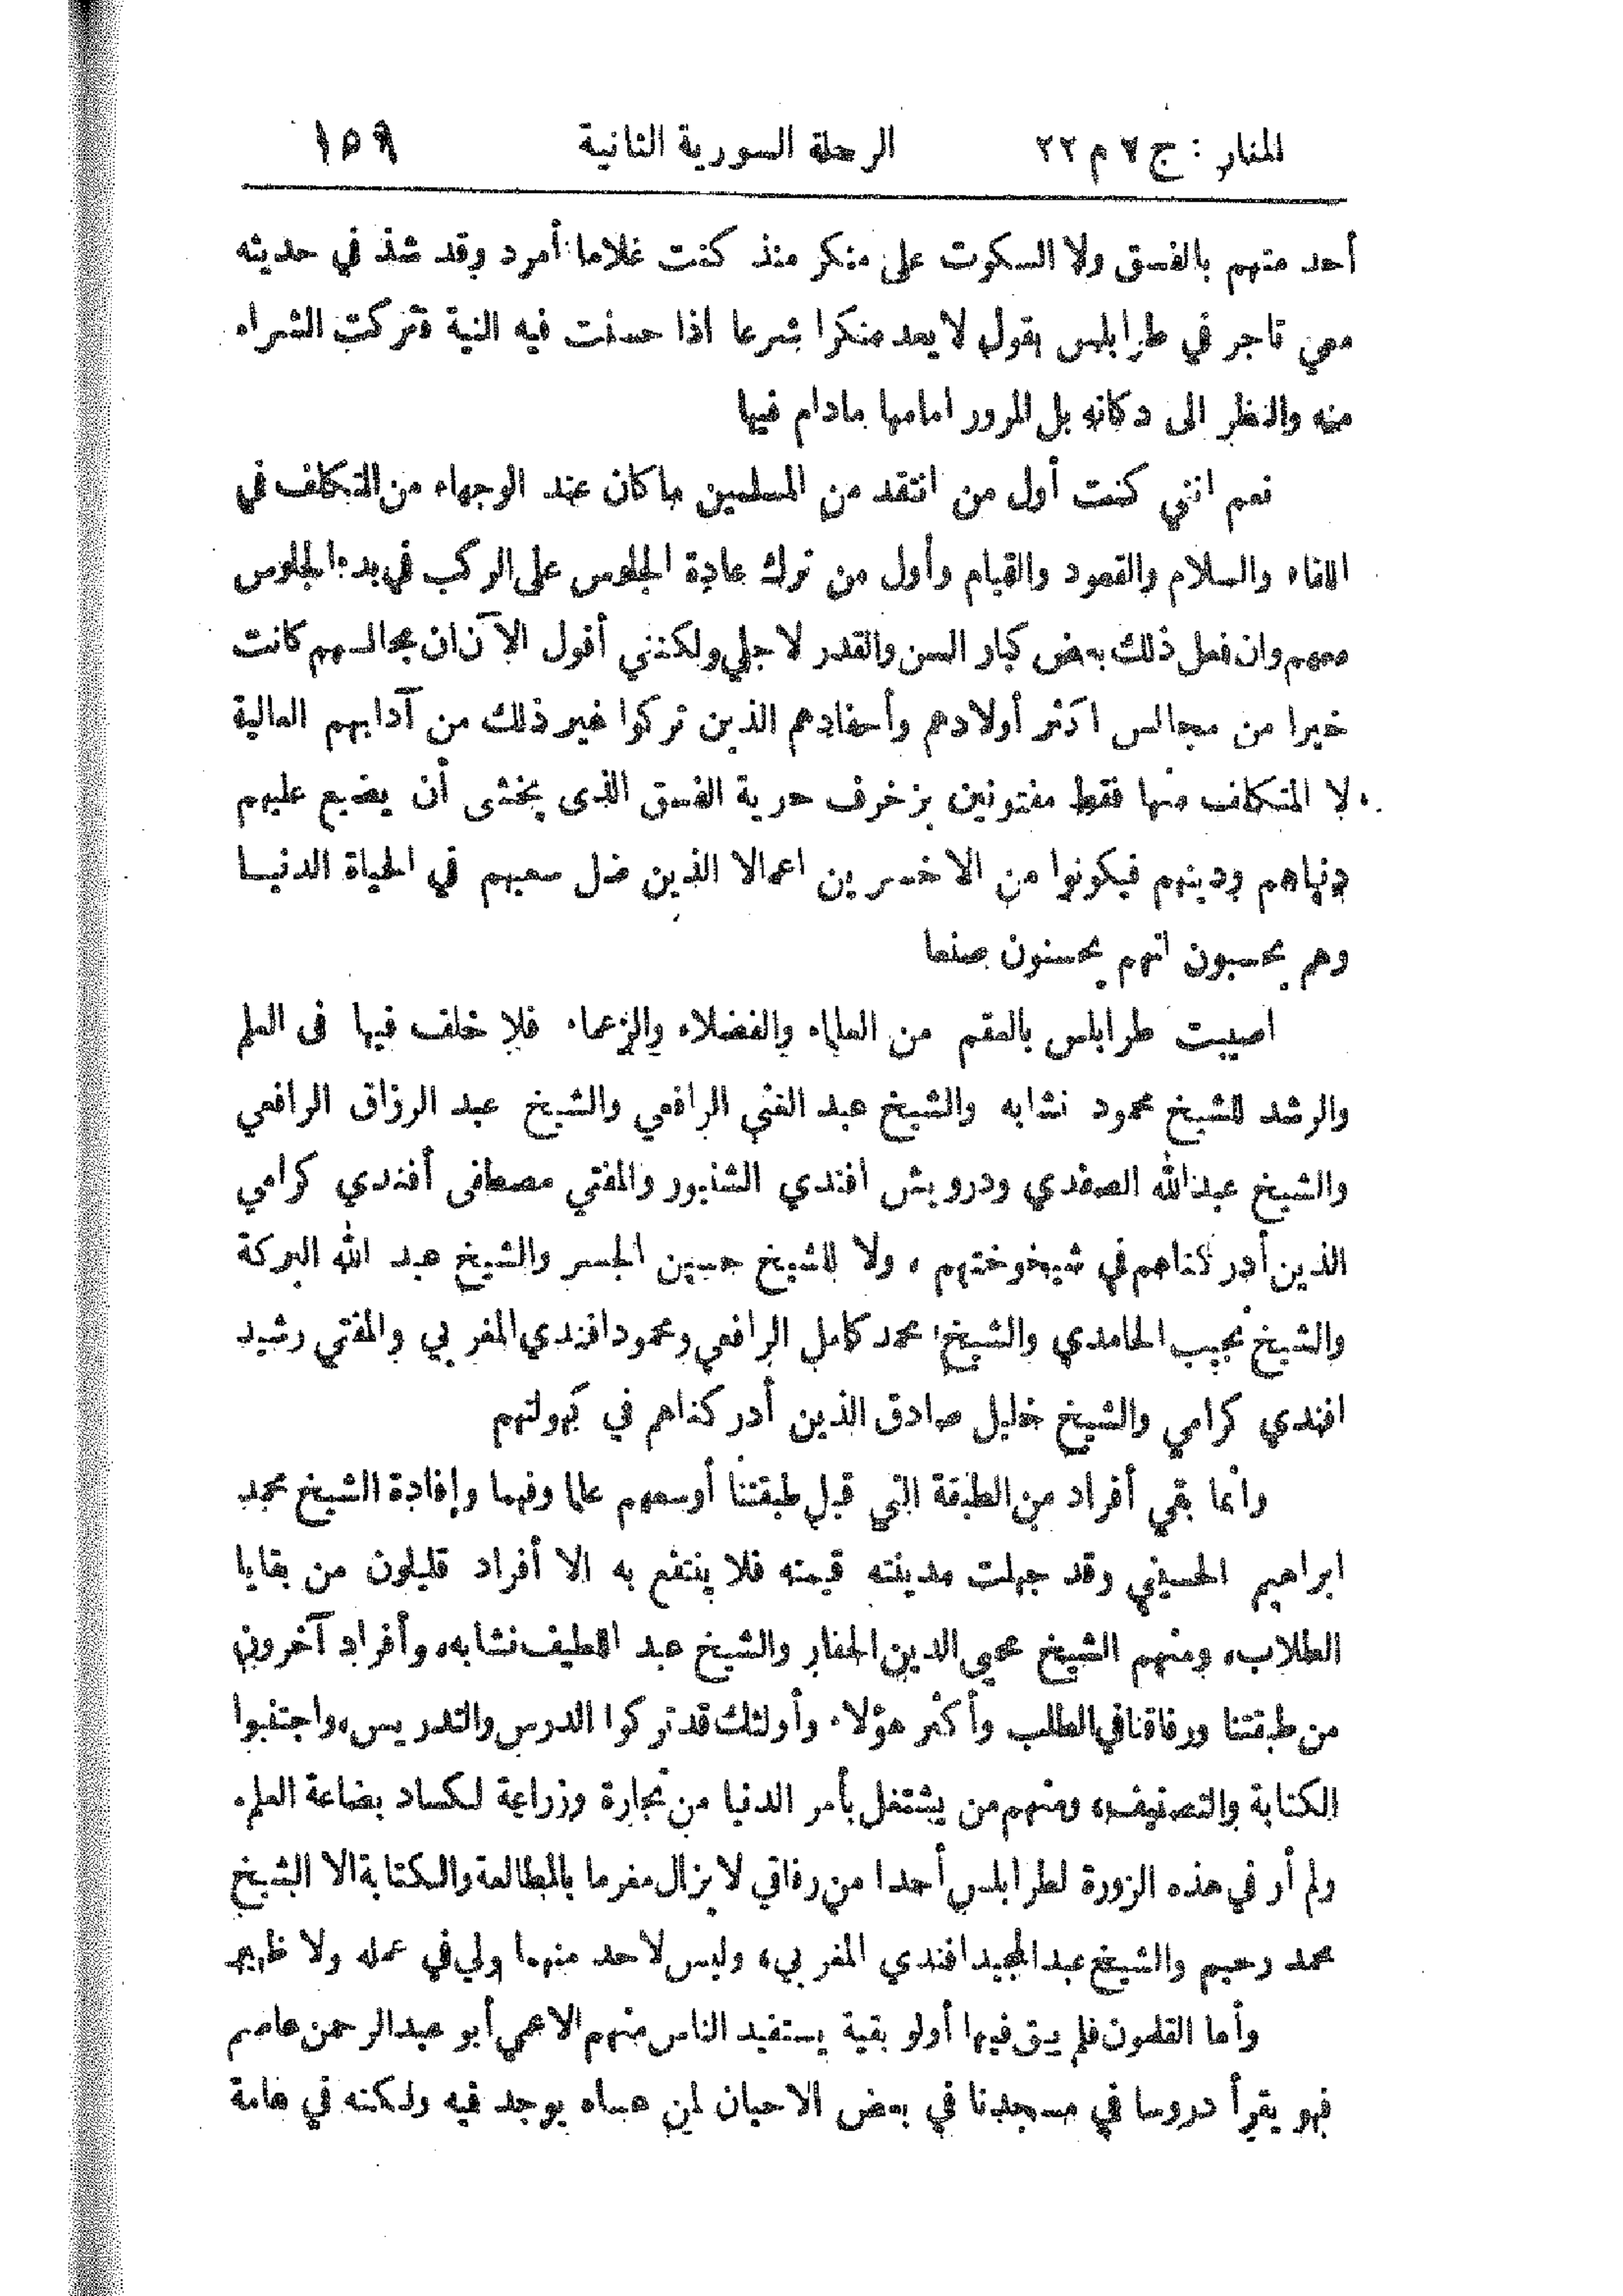 المنار : ج ٧ م ٢٢ الرحلة السورية الثانية ١٥٩
أحد متهم بالفسق ولا السكوت على منكر منذ كنت غلاما أمرد وقد شذ في حديثه
معي تاجر في طرابلس بقول لا يعد منكرا شرعا اذا حسنت فيه النية فتركت الشراء
منه والنظر الى دكانه بل المرور امامها مادام فيها
نعم انني كنت أول من انتقد من المسلمين ما كان عند الوجهاء من التكلف في
اللقاء والسلام والقعود والقيام وأول من ترك عادة الجلوس على الركب في بدء الجلوس
معهم وان فعل ذلك بعض كبار السن والقدر لاجلي ولكنني أقول الآن ان مجالسهم كانت
خيرا من مجالس اكثر أولادهم وأحفادهم الذين تركوا خير ذلك من آدابهم العالية
لا المتكلف منها فقط مفتونين بزخرف حرية الفسق الذى يخشى أن يضيع عليهم
دنياهم ودينهم فيكونوا من الاخسرين اعمالا الذين ضل سعيهم في الحياة الدنيا
وهم يحسبون انهم يحسنون صنعا
اصيبت طرابلس بالعقم من العلماء والفضلاء والزعماء فلا خلف فيها فى العلم
والرشد للشيخ محمود نشابه والشيخ عبد الغني الرافعي والشيخ عبد الرزاق الرافعي
والشيخ عبد الله الصفدي ودرويش افندي الشنبور والمفتي مصطفى أفندي كرامي
الذين أدركناهم في شيخوختهم ، ولا للشيخ حسين الجسر والشيخ عبد الله البركة
والشيخ نجيب الحامدي والشيخ محمد كامل الرافعي ومحمود افندي المغربي والمفتي رشيد
افندي كرامي والشيخ خليل صادق الذين أدركناهم في كهولتهم
وانما بقي أفراد من الطبقة التي قبل طبقتنا أوسعهم علما وفهما وإفادة الشيخ محمد
ابراهيم الحسيني وقد جهلت مدينته قيمته فلا ينتفع به الا أفراد قليلون من بقايا
الطلاب، ومنهم الشيخ محيي الدين الحفار والشيخ عبد اللطيف نشابه، وأفراد آخرون
من طبقتنا ورفاقنا في الطلب وأكثر هؤلاء وأولئك قد تركوا الدرس والتدريس، واجتنبوا
الكتابة والتصنيف، ومنهم من يشتغل بأمر الدنيا من تجارة وزراعة لكساد بضاعة العلم.
ولم أر في هذه الزورة لطرابلس أحدا من رفاقي لا يزال مغرما بالمطالعة والكتابة الا الشيخ
محمد رحيم والشيخ عبد المجيد افندي المغربي، وليس لاحد منهما ولي في عمله ولا ظهير
وأما القلمون فلم يبق فيها أولو بقية يستفيد الناس منهم الا عمي أبو عبد الرحمن عاصم
فهو يقرأ دروسا في مسجدنا في بعض الاحيان لمن عساه يوجد فيه ولكنه في عامة